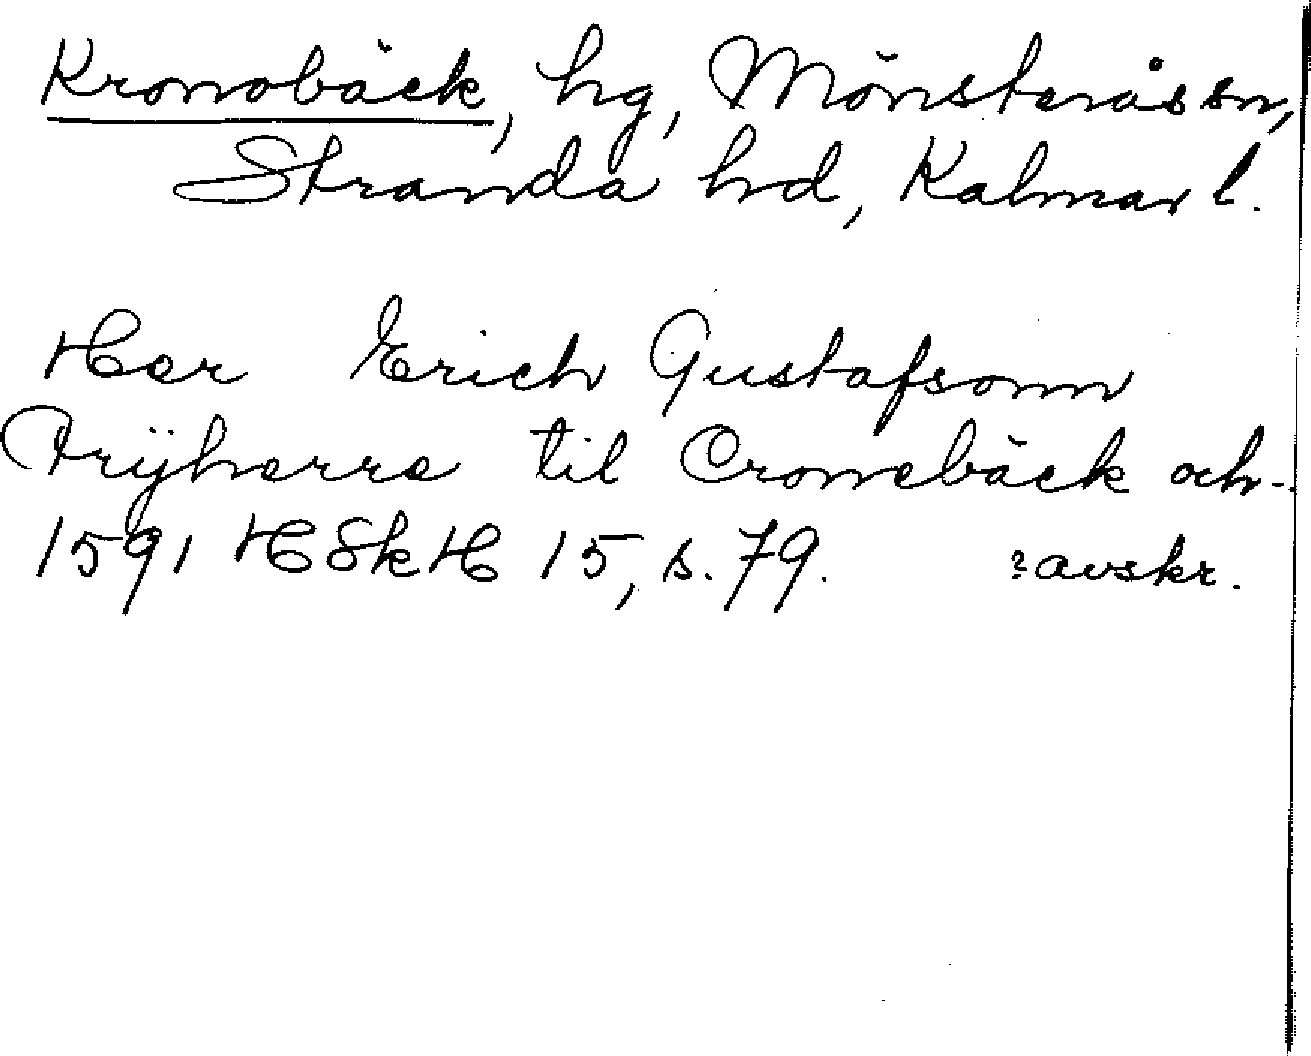 Kronobäck, hg, Mönsterås sn,
Stranda hd, Kalmar l.
Her Erich Gustafsonn
Frÿherre til Cronebäck och -.
1591 HSkH 15, s. 79. ? avskr.